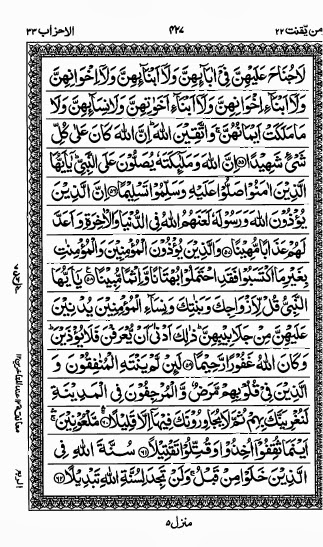 من یقنت ۲۲
۴۲۷
الاحزاب ۳۳
لَا جُنَاحَ عَلَیْهِنَّ فِیْۤ اٰبَآىِٕهِنَّ وَلَاۤ اَبْنَآىِٕهِنَّ وَلَاۤ اِخْوَانِهِنَّ
وَلَاۤ اَبْنَآءِ اِخْوَانِهِنَّ وَلَاۤ اَبْنَآءِ اَخَوٰتِهِنَّ وَلَا نِسَآىِٕهِنَّ وَلَا
مَا مَلَكَتْ اَیْمَانُهُنَّ ۚ وَاتَّقِیْنَ اللّٰهَ ؕ اِنَّ اللّٰهَ كَانَ عَلٰی كُلِّ
شَیْءٍ شَهِیْدًا ﴿۵۵﴾ اِنَّ اللّٰهَ وَمَلٰٓىِٕكَتَهٗ یُصَلُّوْنَ عَلَی النَّبِیِّ ؕ یٰۤاَیُّهَا
الَّذِیْنَ اٰمَنُوْا صَلُّوْا عَلَیْهِ وَسَلِّمُوْا تَسْلِیْمًا ﴿۵۶﴾ اِنَّ الَّذِیْنَ
یُؤْذُوْنَ اللّٰهَ وَرَسُوْلَهٗ لَعَنَهُمُ اللّٰهُ فِی الدُّنْیَا وَالْاٰخِرَةِ وَاَعَدَّ
لَهُمْ عَذَابًا مُّهِیْنًا ﴿۵۷﴾ وَالَّذِیْنَ یُؤْذُوْنَ الْمُؤْمِنِیْنَ وَالْمُؤْمِنٰتِ
بِغَیْرِ مَا اكْتَسَبُوْا فَقَدِ احْتَمَلُوْا بُهْتَانًا وَّاِثْمًا مُّبِیْنًا ﴿۵۸﴾ یٰۤاَیُّهَا
النَّبِیُّ قُلْ لِّاَزْوَاجِكَ وَبَنٰتِكَ وَنِسَآءِ الْمُؤْمِنِیْنَ یُدْنِیْنَ
عَلَیْهِنَّ مِنْ جَلَابِیْبِهِنَّ ؕ ذٰلِكَ اَدْنٰۤی اَنْ یُّعْرَفْنَ فَلَا یُؤْذَیْنَ ؕ
وَكَانَ اللّٰهُ غَفُوْرًا رَّحِیْمًا ﴿۵۹﴾ لَىِٕنْ لَّمْ یَنْتَهِ الْمُنٰفِقُوْنَ وَ
الَّذِیْنَ فِیْ قُلُوْبِهِمْ مَّرَضٌ وَّالْمُرْجِفُوْنَ فِی الْمَدِیْنَةِ
لَنُغْرِیَنَّكَ بِهِمْ ثُمَّ لَا یُجَاوِرُوْنَكَ فِیْهَاۤ اِلَّا قَلِیْلًا ﴿۶۰﴾ مَّلْعُوْنِیْنَ ۛۚ
اَیْنَمَا ثُقِفُوْۤا اُخِذُوْا وَقُتِّلُوْا تَقْتِیْلًا ﴿۶۱﴾ سُنَّةَ اللّٰهِ فِی
الَّذِیْنَ خَلَوْا مِنْ قَبْلُ ۚ وَلَنْ تَجِدَ لِسُنَّةِ اللّٰهِ تَبْدِیْلًا ﴿۶۲﴾
منزل ۵